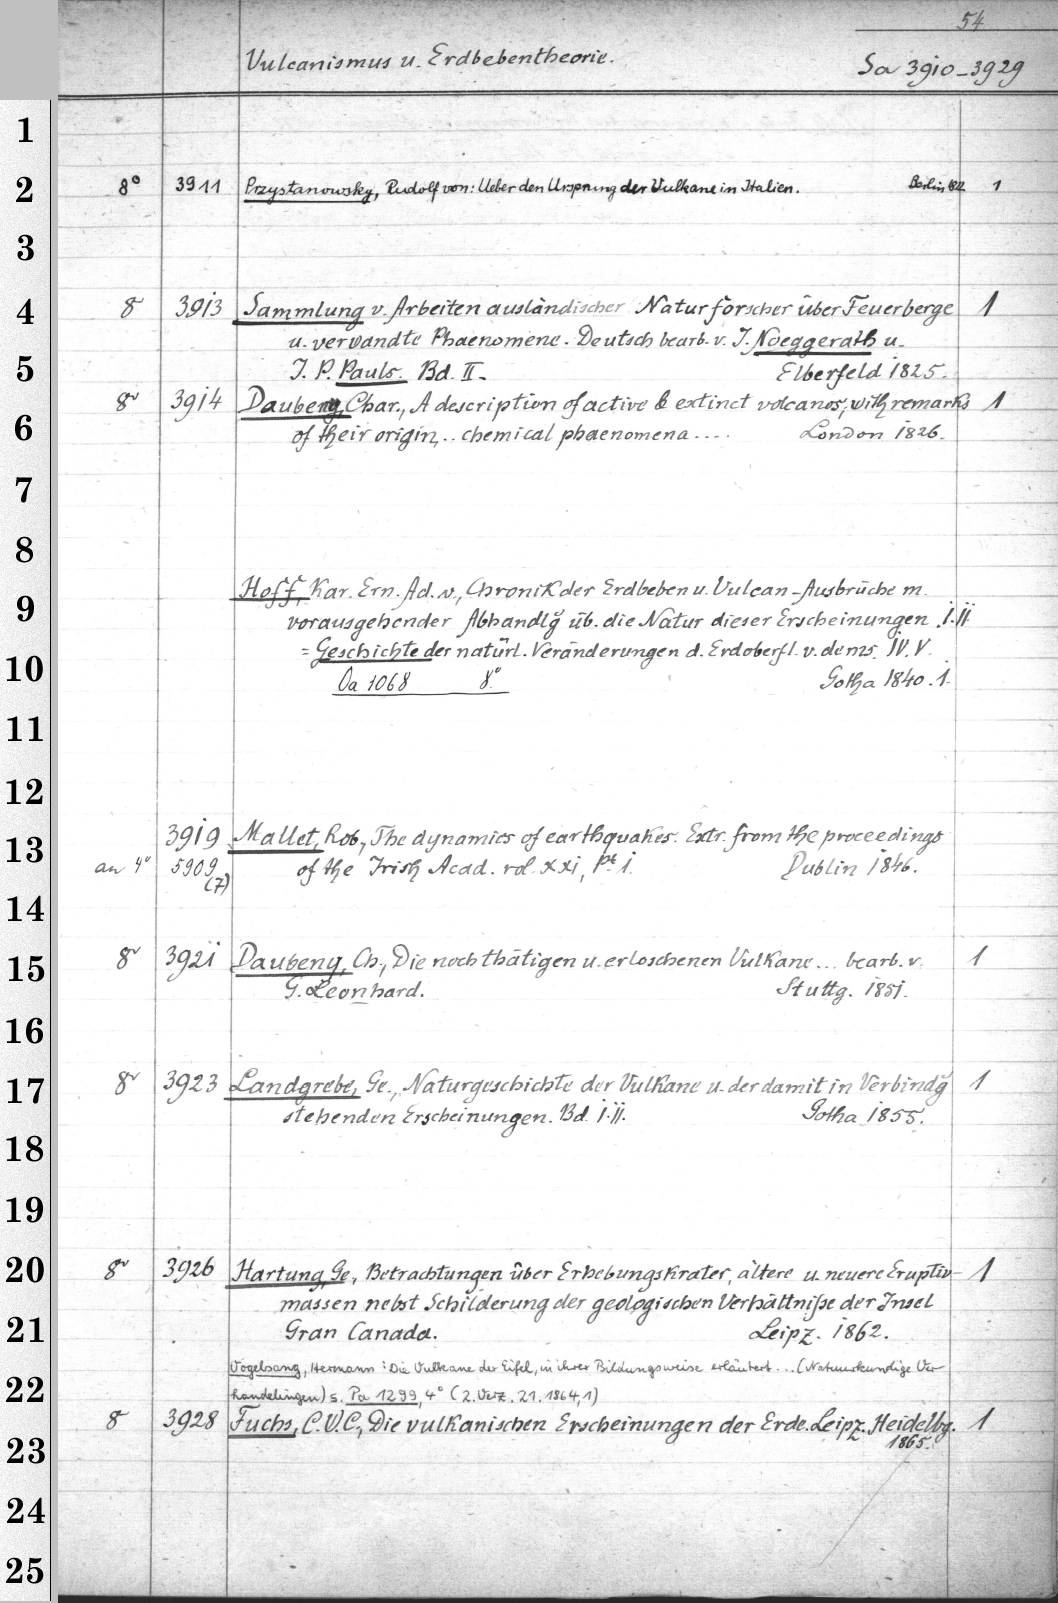 54
Vulcanismus u. Erdbebentheorie. Sa 3910-3929
1
2 8° 3911 Przystanowsky, Rudolf von: Ueber den Ursprung der Vulkane in Italien. Berlin 1822 1
3
4 8° 3913 Sammlung v. Arbeiten ausländischer Naturforscher über Feuerberge 1
u. verwandte Phaenomene. Deutsch bearb. v. J. Noeggerath u.
5 J. P. Pauls. Bd. II. Elberfeld 1825.
8° 3914 Daubeny, Char., A description of active & extinct volcanos, with remarks 1
6 of their origin, .. chemical phaenomena .... London 1826.
7
8
Hoff, Kar. Ern. Ad. v., Chronik der Erdbeben u. Vulcan-Ausbrüche m.
9 vorausgehender Abhandlg üb. die Natur dieser Erscheinungen. I. II
= Geschichte der natürl. Veränderungen d. Erdoberfl. v. dems. IV. V.
10 Oa 1068 8° Gotha 1840. 1.
11
12
3919 Mallet, Rob., The dynamics of earthquakes. Extr. from the proceedings
13 an 4° 5909 (7) of the Irish Acad. vol. XXI, pt I. Dublin 1846.
14
15 8° 3921 Daubeny, Ch., Die noch thätigen u. erloschenen Vulkane ... bearb. v. 1
G. Leonhard. Stuttg. 1851.
16
17 8° 3923 Landgrebe, Ge., Naturgeschichte der Vulkane u. der damit in Verbindg 1
stehenden Erscheinungen. Bd. I. II. Gotha 1855.
18
19
20 8° 3926 Hartung, Ge., Betrachtungen über Erhebungskrater, ältere u. neuere Eruptiv- 1
massen nebst Schilderung der geologischen Verhältniße der Insel
21 Gran Canada. Leipz. 1862.
Vogelsang, Hermann: Die Vulkane der Eifel, in ihrer Bildungsweise erläutert ... (Natuurkundige Ver-
22 handelingen) s. Pa 1299, 4° (2. Verz. 21. 1864, 1)
8 3928 Fuchs, C. V. C., Die vulkanischen Erscheinungen der Erde. Leipz. Heidelbg. 1
23 1865.
24
25